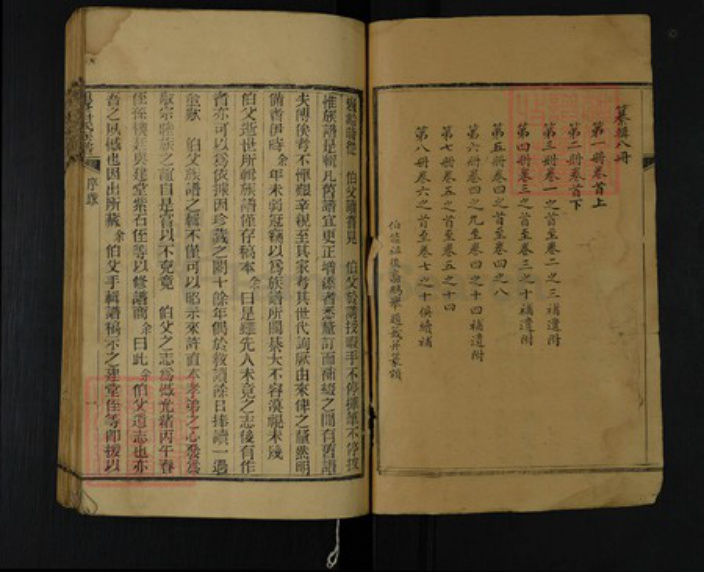 纂輯八冊
第一冊卷首上
第二冊卷首下
第三冊卷一之首至卷二之三補遺附
第四冊卷三之首至卷三之十補遺附
第五冊卷四之首至卷四之八
第六冊卷四之九至卷四之十四補遺附
第七冊卷五之首至卷五之十四
第八冊卷六之首至卷七之十俟續補
余幼時從 伯父讀書見 伯父於講授暇手不停揮筆不停披
惟族譜是輯凡舊譜宜更正增添者悉釐訂而補綴之間有舊譜
失傳俟考不憚艱辛親至其家考其世代詢厥由來俾之釐然明
備者伊時余年未弱冠竊以為族譜所關綦大不容漠視未幾
伯父逝世所輯族譜僅存稿本余曰是雖先人未竟之志後有作
者亦可以為依據因珍藏之閱十餘年偶於教讀餘日捧讀一過
竊歎 伯父族譜之輯不僅可以昭示來許直本孝弟之心發為
敬宗睦族之誼自是嘗以不克竟 伯父之志為憾光緒丙午春
侄孫懷廷與建堂紫石侄等以修譜商余曰此余伯父遺志也亦
吾之夙憾也因出所藏余 伯父手輯譜稿示之蓮堂侄等即援以
序
一